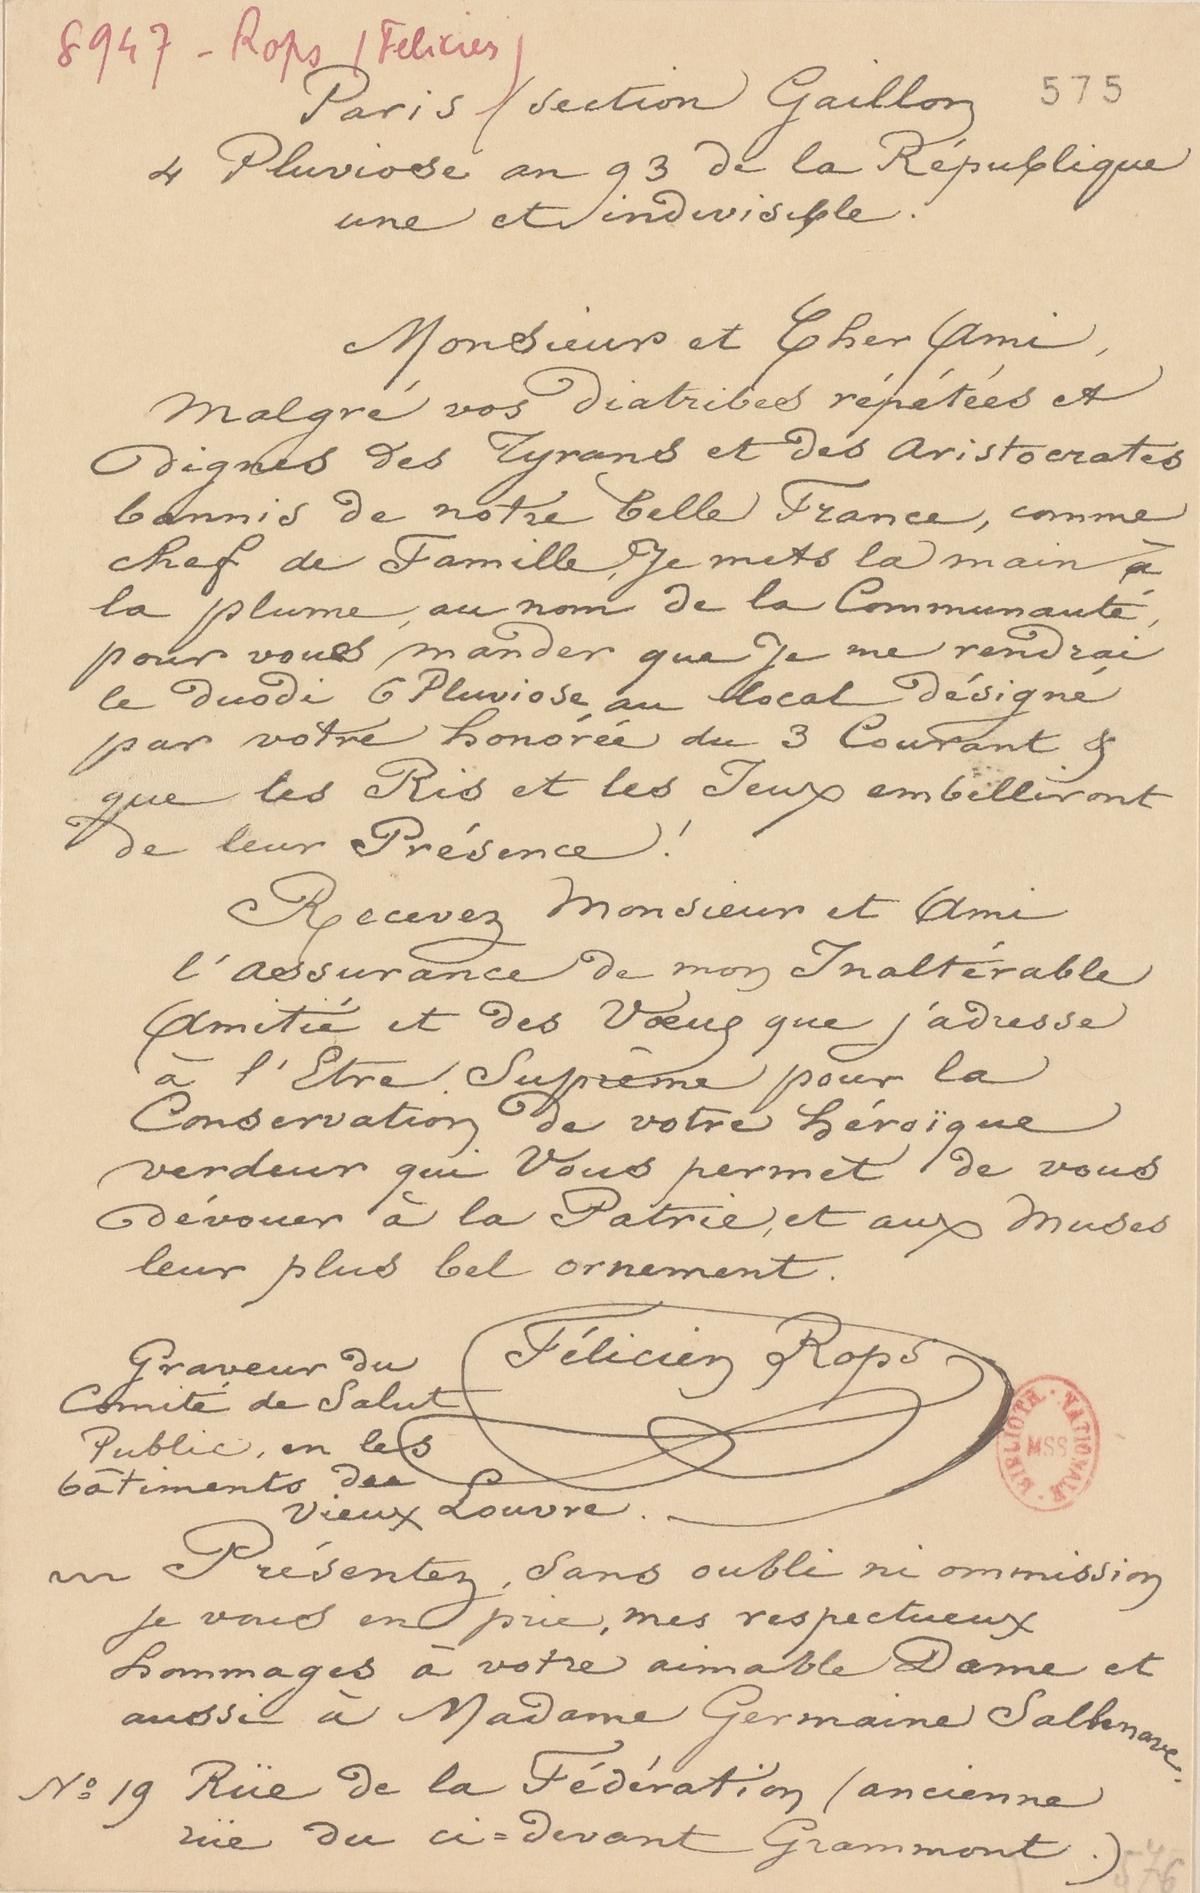 8947 - Rops (Félicien)
575
Paris (section Gaillon
4 Pluviose an 93 de la République
une et indivisible.
Monsieur et Cher Ami,
Malgré vos Diatribes répétées et
dignes des Tyrans et des Aristocrates
bannis de notre belle France, comme
chef de Famille, Je mets la main à
la plume, au nom de la Communauté,
pour vous mander que Je me rendrai
le duodi 6 Pluviose au local désigné
par votre honorée du 3 Courant &
que les Ris et les Jeux embelliront
de leur Présence !
Recevez Monsieur et Ami
l'assurance de mon Inaltérable
Amitié et des Vœux que j'adresse
à l'Etre Suprême pour la
Conservation de votre héroïque
verdeur qui Vous permet de vous
dévouer à la Patrie, et aux Muses
leur plus bel ornement.
Félicien Rops
Graveur du
Comité de Salut
Public, en les
bâtiments du
Vieux Louvre.
BIBLIOTH. NATIONALE
MSS
Présentez, sans oubli ni ommission
je vous en prie, mes respectueux
hommages à votre aimable Dame et
aussi à Madame Germaine Sallenave.
No 19 Rüe de la Fédération (ancienne
rüe du ci=devant Grammont.)
576